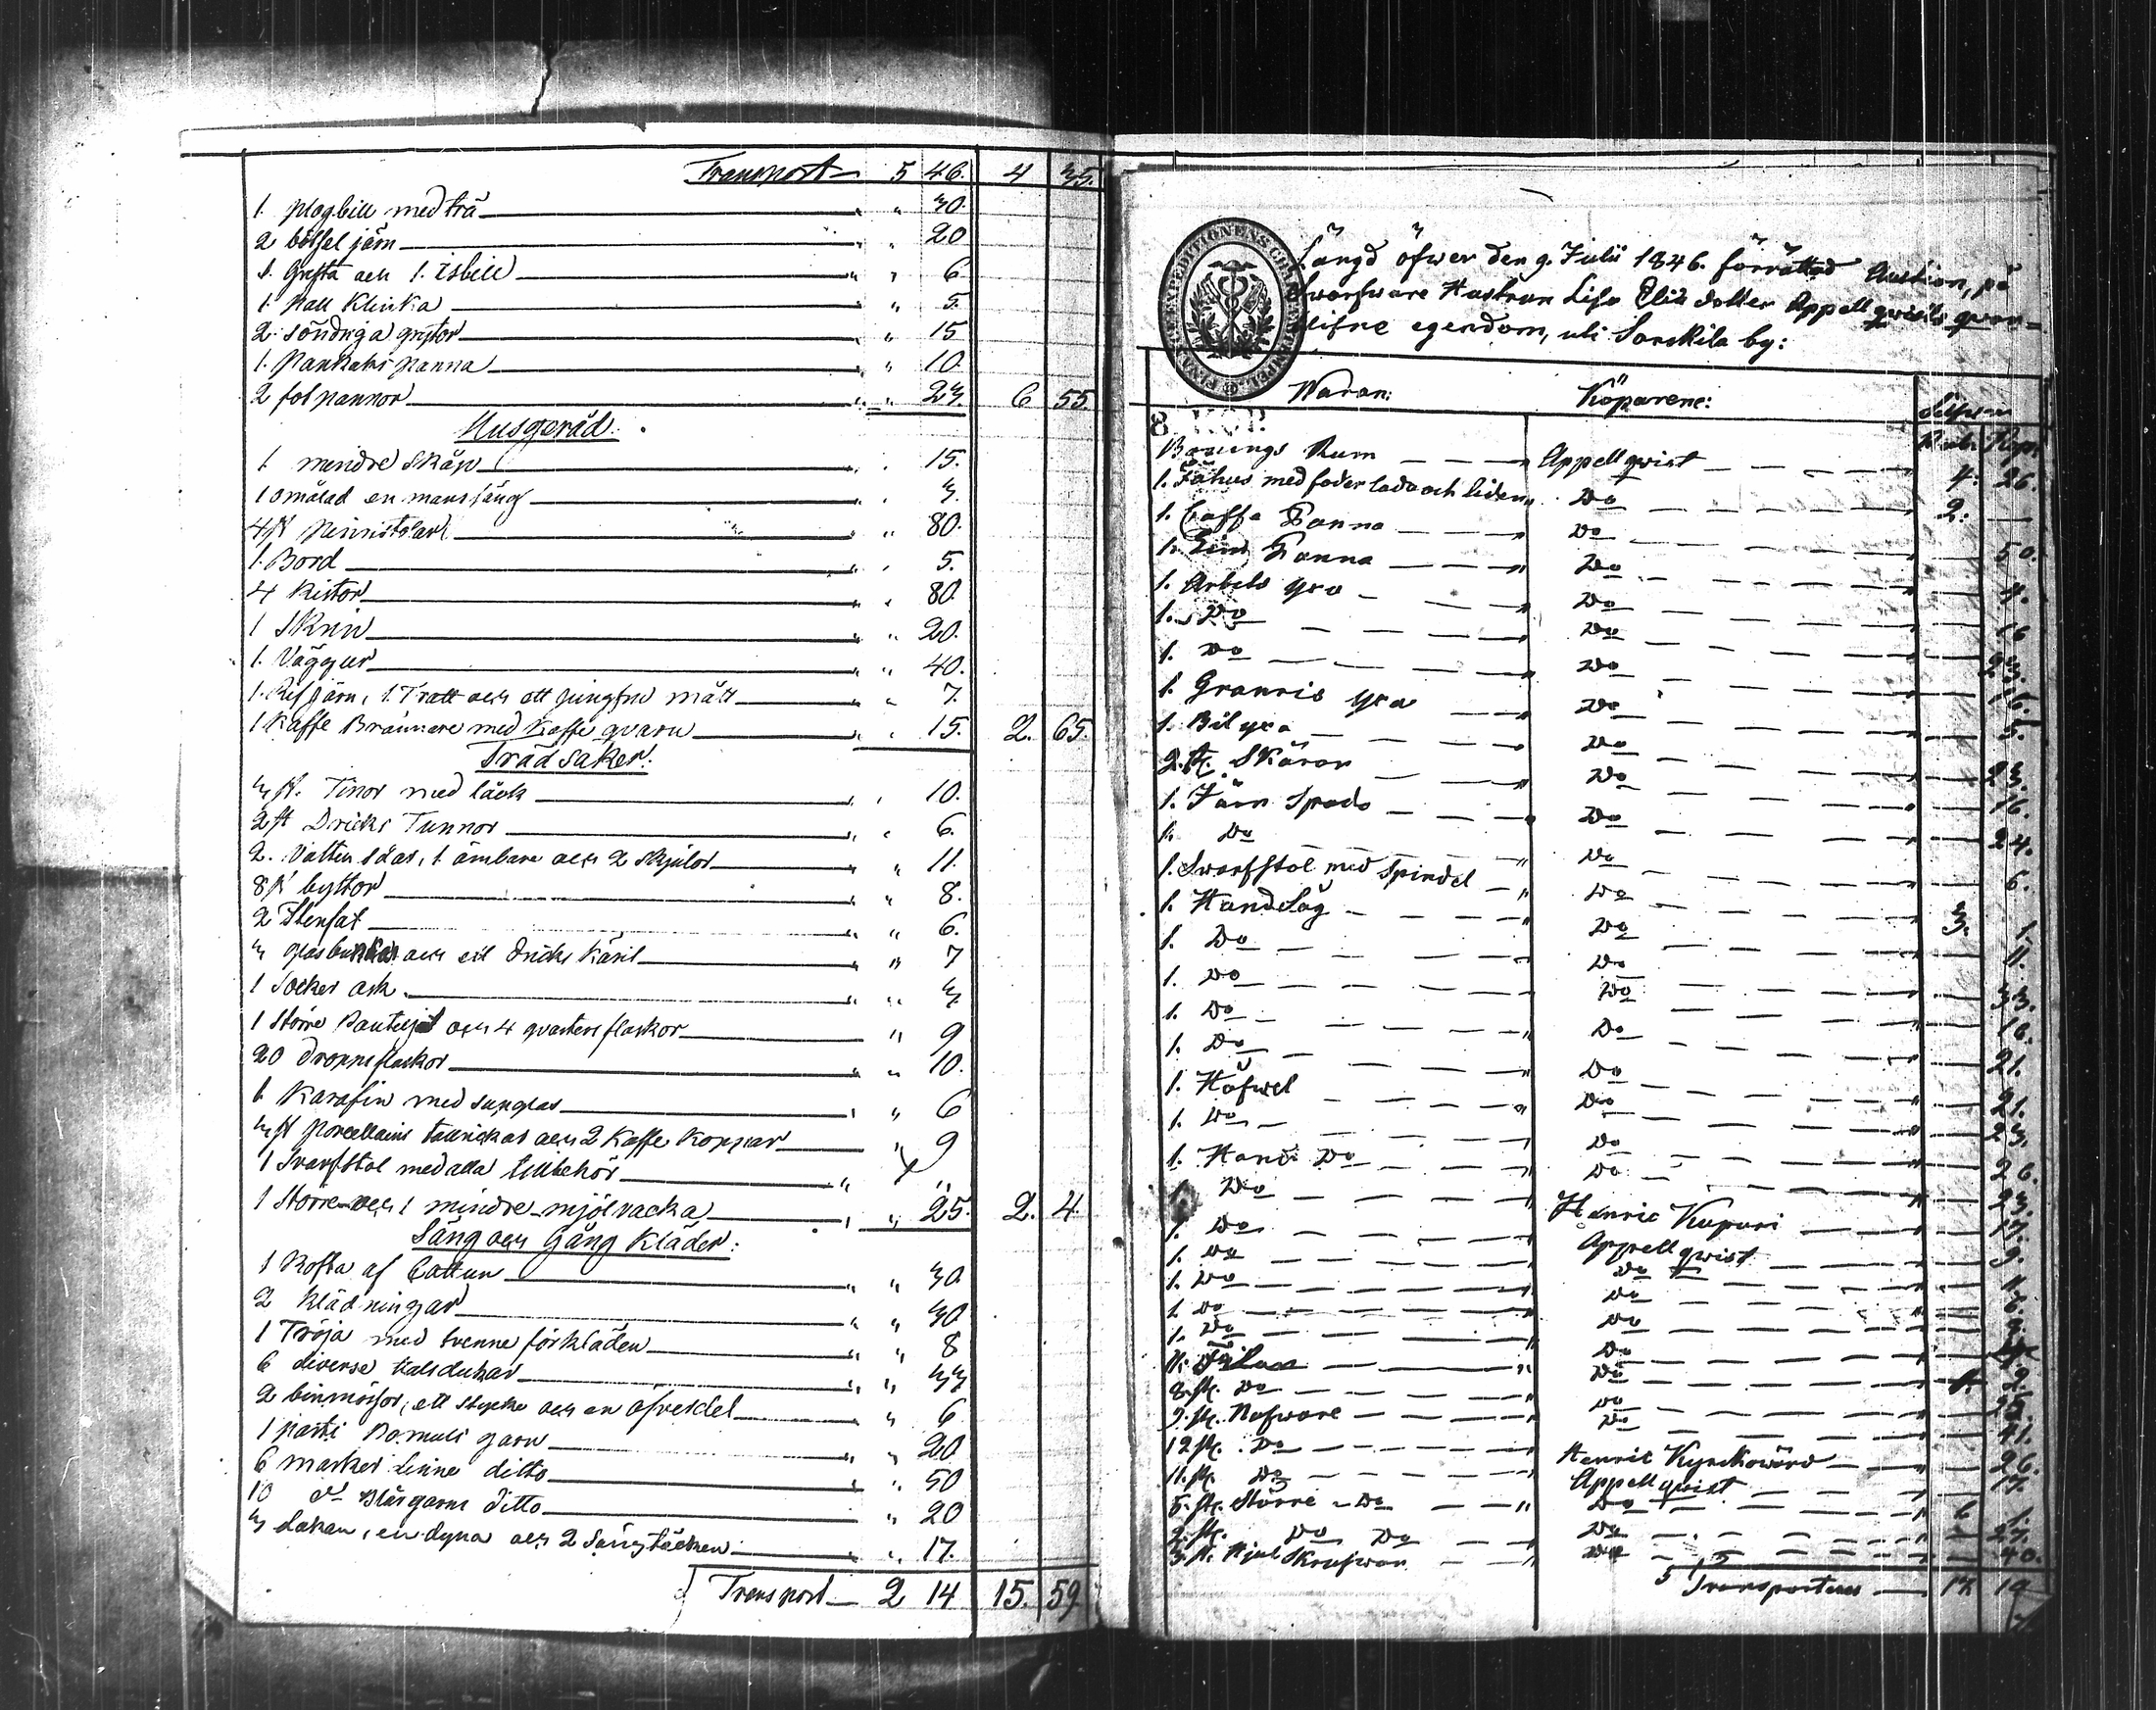 Transport 5 46. 4 35.
1. plogbill med trä " " 30.
2 betsel järn " " 20
1. Gryta och 1. isbill " " 6
1. Hall Klinka " " 5.
2. söndriga grytor " 15
1. Pankaks panna " " 10.
2 fot pannor " " 23. 6 55.
Husgeråd.
1 mindre Skåp " " 15.
1 omålad en mans säng " " 3.
4 st pinnstolar " " 80.
1. Bord " " 5.
4 Kistor " " 80.
1 Skrin " " 20.
1. Väggur " " 40.
1. Rifjärn, 1. Tratt och ett jungfru mått " " 7.
1 Kaffe Brännare med Kaffe qvarn " " 15. 2. 65.
Träd saker.
3 st. Tinor med läck " " 10.
2 st Dricks Tunnor " " 6.
2. Vatten såar, 1 ämbare och 2 skjulor " 11.
8 st byttor " " 8.
2 Stenfat " " 6.
3 glas och ett dricks Käril " " 7
1 Socker ask " " 3.
1 Större och 4 qvarters flaskor " 9
20 flaskor " " 10.
1. Karafin med supglas " " 6
3 st Porcellains tallrickar och 2 Kaffe Koppar " 9
1 Svarfstol med alla tillbehör " "
1 Större och 1 mindre mjölvacka " " 25. 2. 4.
Säng och Gång Kläder:
1 Kofta af Cattun " " 30
2 Klädningar " " 30
1 Tröja med tvenne förkläden " " 8
6 diverse halsdukar " " 33
2 binmössor, ett stycke och en öfverdel " 6
1 parti Bomuls garn " 20
6 marker Linne ditto " " 50
10 do Blårgarns ditto " 20
3 Lakan, en dyna och 2 Sängtäcken " " 17.
Transport 2 14 15. 59.
Längd öfwer den 9. Julii 1846. förrättad Auktion, på
Swarfware Hustrun Lisa Elis dotter Appellqwists qwar-
lifne egendom, uti Sorrkila by:
Waran: Köparene: Silfwer
Rub: Kop:
Bonings Rum Appellqwist 4. 26.
1. Fähus med foder lada och liden Do 2. —
1. Caffe Panna Do 50.
1. Panna Do 4.
1. Arbets yxa Do 16
1. Do Do 23.
1. Do Do 16.
1. Granris yxa Do 5.
1. Bilyxa Do 23.
2. st. Skäror Do 16.
1. Järn Spade Do 24.
1. Do Do 6.
1. Swarfstol med Spindel Do 3. 1.
1. Handsåg Do 11.
1. Do Do 33.
1. Do Do 16.
1. Do Do 21.
1. Do Do 21.
1. Höfwel Do 23.
1. Do Do 26.
1. Hand Do Do 23.
1. Do Henric Kupari 17.
1. Do Appellqwist 9.
1. Do Do
1. Do Do
1. Do Do
1. Do Do
11. Filar Do
8. st. Do Do
9. st. Nafware Do 41.
12 st. Do Henric Kyrckowärd 26.
11. st. Do Appellqwist 17.
5. st. Större Do Do
2. st. Do Do Do
3. st. Hjul Do 40.
Transporteras 17. 19